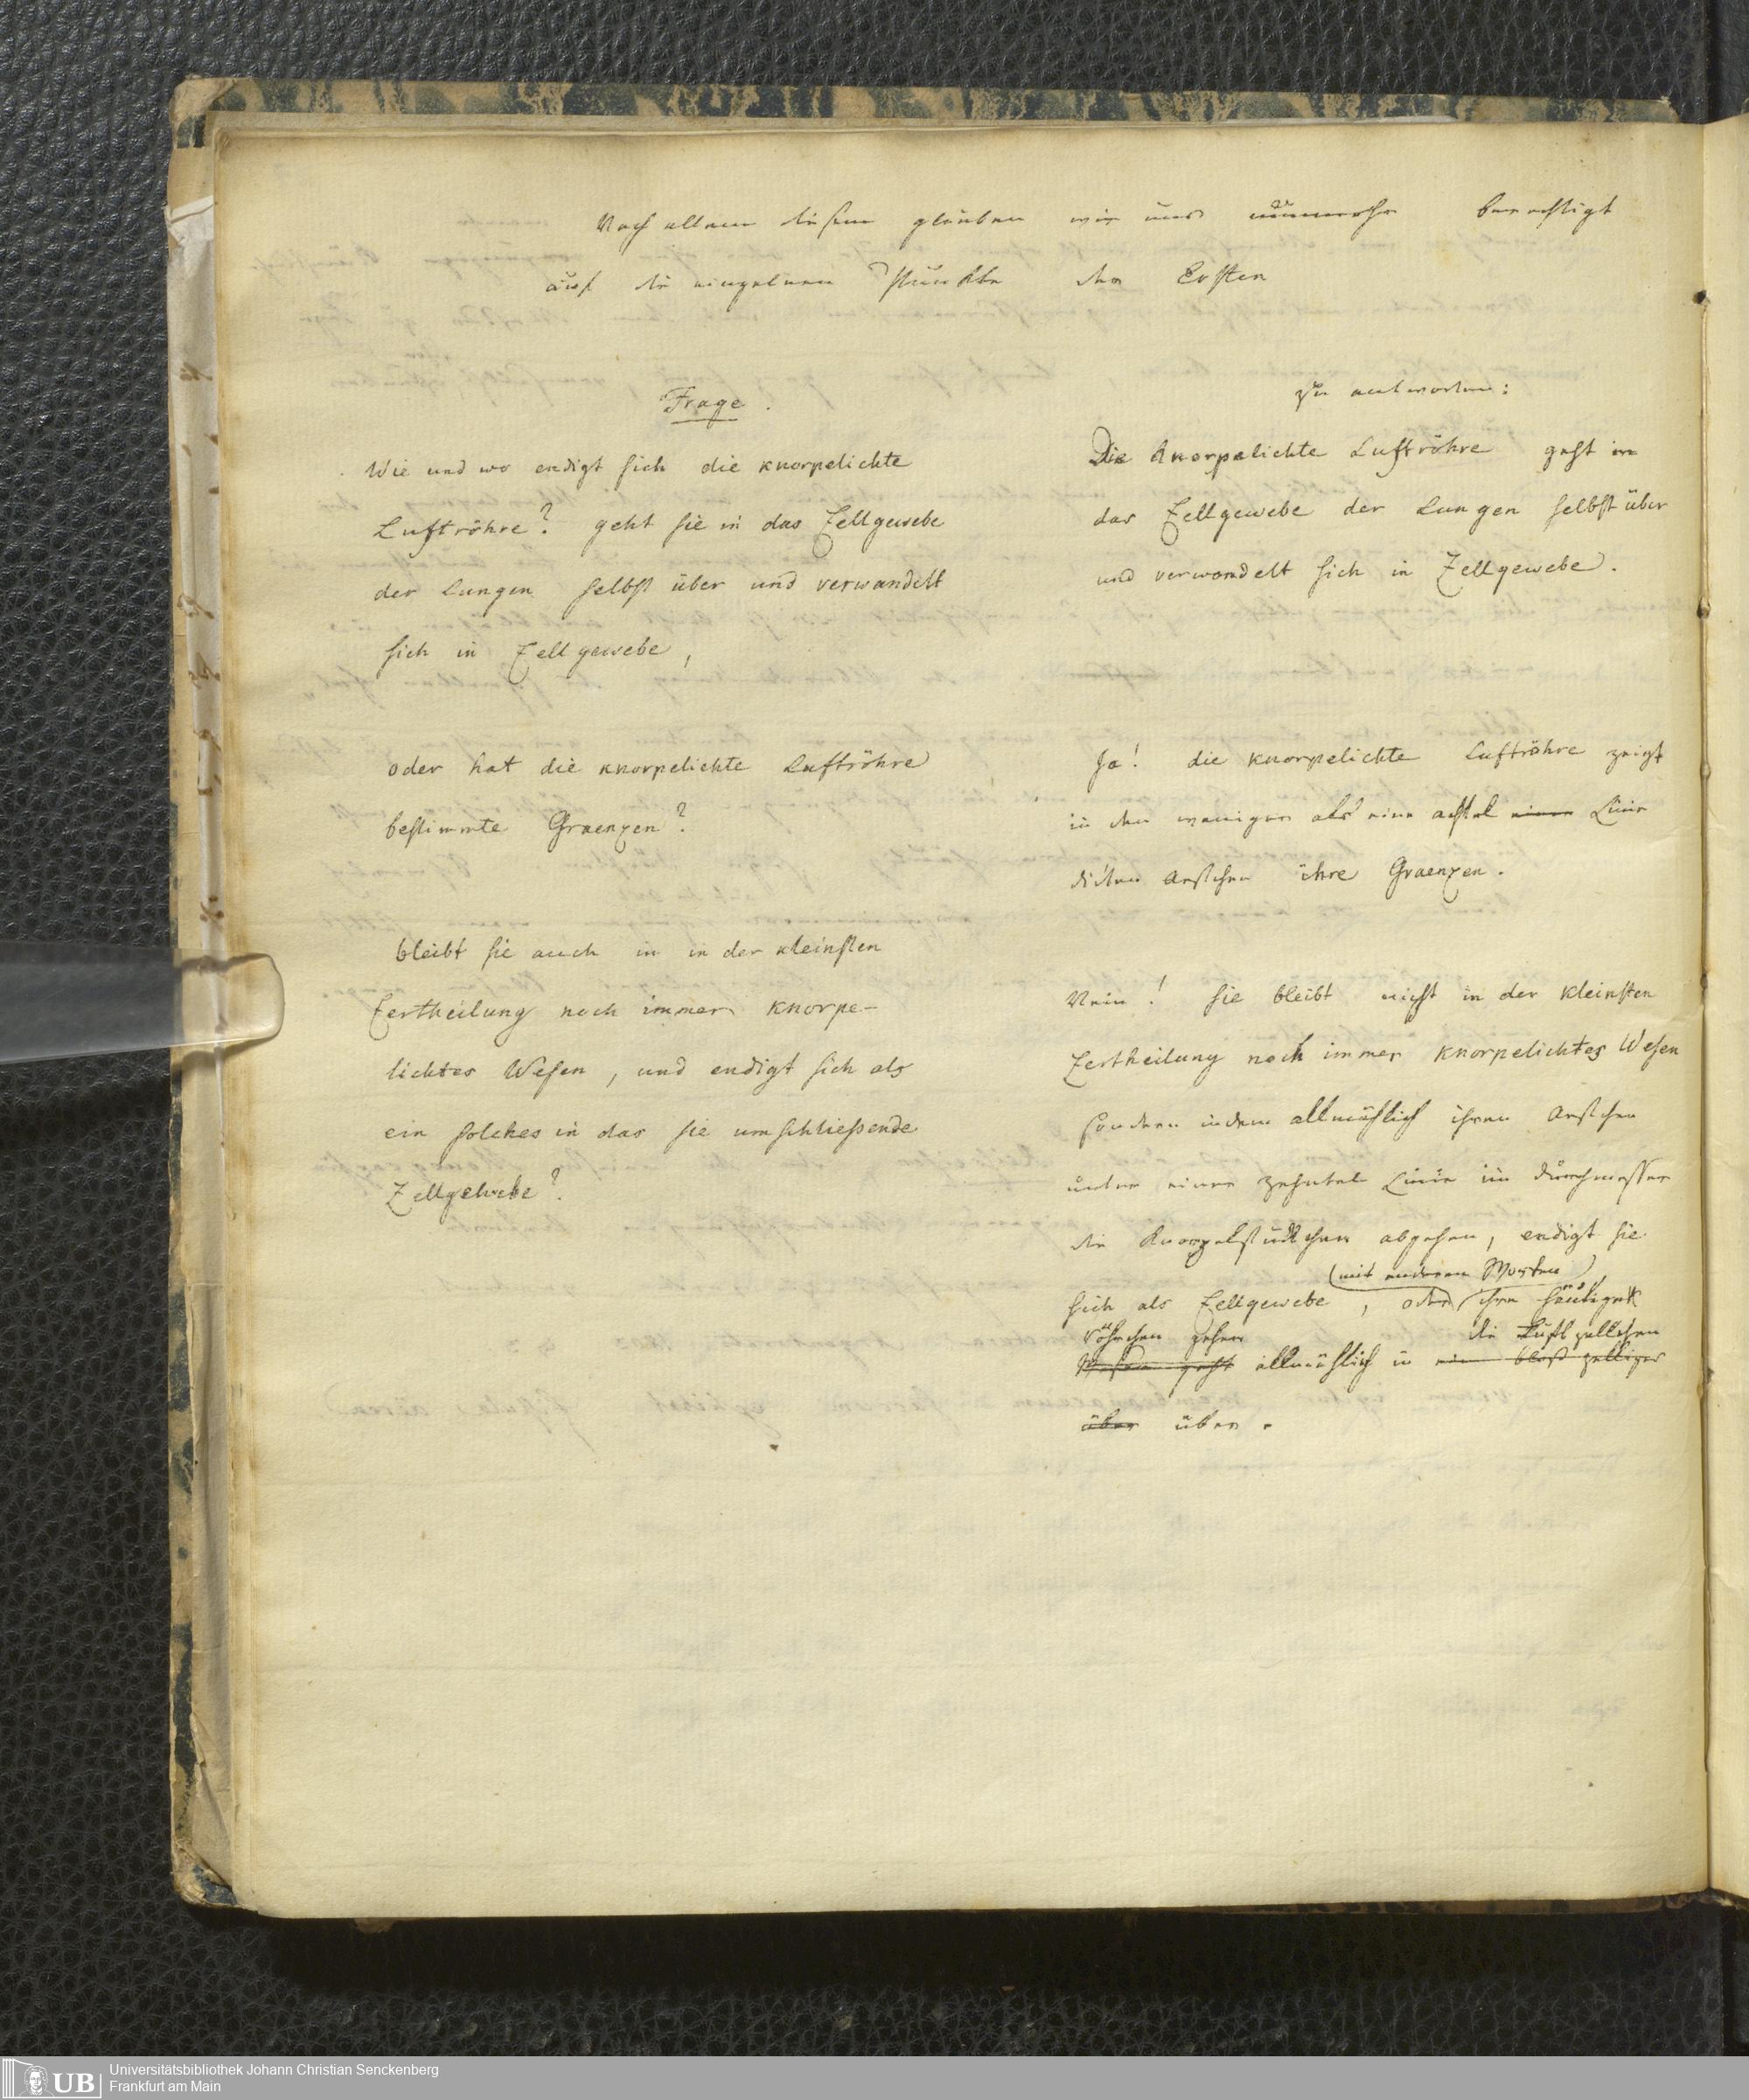 Nach allem diesem glauben wir uns nunmehr berechtigt
auf die einzelnen Punkte der Ersten
Frage.
Wie und wo endigt sich die knorpelichte
Luftröhre? geht sie in das Zellgewebe
der Lungen selbst über und verwandelt
sich in Zellgewebe,
oder hat die knorpelichte Luftröhre
bestimmte Graenzen?
bleibt sie auch in in der kleinsten
Zertheilung noch immer knorpe-
lichtes Wesen, und endigt sich als
ein solches in das sie umschließende
Zellgewebe?
zu antworten:
Die knorpelichte Luftröhre geht in
das Zellgewebe der Lungen selbst über
und verwandelt sich in Zellgewebe.
Ja! die knorpelichte Luftröhre zeigt
in den weniger als eine achtel einer Linie
dicken Aestchen ihre Graenzen.
Nein! sie bleibt nicht in der kleinsten
Zertheilung noch immer knorpelichtes Wesen
sondern indem allmählich ihren Aestchen
unter einer zehntel Linie im Durchmesser
die Knorpelstückchen abgehen, endigt sie
(mit anderen Worten)
sich als Zellgewebe, oder ihre häutigen
Röhrchen gehen die Luftzellchen
Wesen geht allmählich in ein bloß zelliges
über über.
Universitätsbibliothek Johann Christian Senckenberg
UB Frankfurt am Main